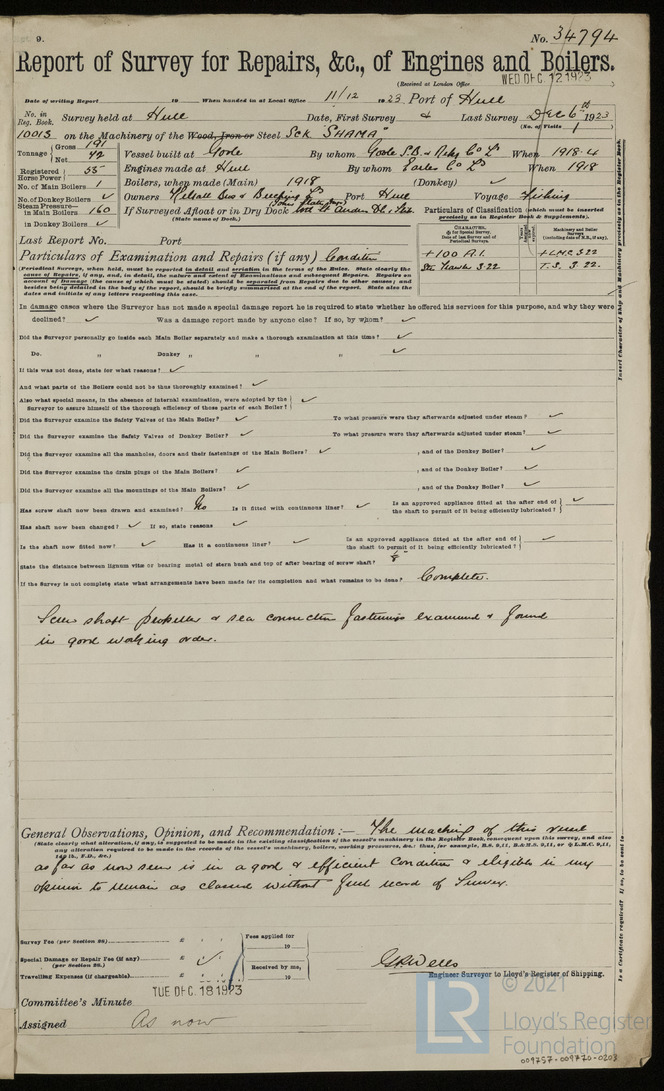 9.
No. 34794
Report of Survey for Repairs, &c., of Engines and Boilers.
(Received at London Office
WED. DEC. 12 1923
Date of writing Report 19 When handed in at Local Office 11/12 1923. Port of Hull
No. in Reg. Book.
Survey held at Hull Date, First Survey & Last Survey Dec 6th 1923
(No. of Visits 1)
10013 on the Machinery of the Wood, Iron or Steel Sck "SHAMA"
Tonnage Gross 191
Net 72
Vessel built at Goole By whom Goole S.B. & Rep. Co Ld When 1918-4
Registered Horse Power 55
Engines made at Hull By whom Earles Co Ld When 1918
No. of Main Boilers 1
Boilers, when made (Main) 1918 (Donkey) ✓
No. of Donkey Boilers ✓
Owners Port Hull Voyage Fishing
Steam Pressure—
in Main Boilers 160
If Surveyed Afloat or in Dry Dock
(State name of Dock.)
in Donkey Boilers ✓
Particulars of Classification (which must be inserted precisely as in Register Book & Supplements).
CHARACTER,
Machinery and Boiler Surveys
(including date of N.B., if any).
+100 A.1. +LMC 3.22
3.22 T.S. 3.22.
Last Report No. Port
Particulars of Examination and Repairs (if any) Condition
(Periodical Surveys, when held, must be reported in detail and seriatim in the terms of the Rules. State clearly the
cause of Repairs, if any, and, in detail, the nature and extent of Examinations and subsequent Repairs. Repairs on
account of Damage (the cause of which must be stated) should be separated from Repairs due to other causes; and
besides being detailed in the body of the report, should be briefly summarised at the end of the report. State also the
dates and initials of any letters respecting this case.
In damage cases where the Surveyor has not made a special damage report he is required to state whether he offered his services for this purpose, and why they were
declined? ✓ Was a damage report made by anyone else? If so, by whom? ✓
Did the Surveyor personally go inside each Main Boiler separately and make a thorough examination at this time? ✓
Do. „ Donkey „ „ „ ✓
If this was not done, state for what reasons? ✓
And what parts of the Boilers could not be thus thoroughly examined? ✓
Also what special means, in the absence of internal examination, were adopted by the
Surveyor to assure himself of the thorough efficiency of those parts of each Boiler? ✓
Did the Surveyor examine the Safety Valves of the Main Boiler? ✓ To what pressure were they afterwards adjusted under steam? ✓
Did the Surveyor examine the Safety Valves of Donkey Boiler? ✓ To what pressure were they afterwards adjusted under steam? ✓
Did the Surveyor examine all the manholes, doors and their fastenings of the Main Boilers? ✓ , and of the Donkey Boiler? ✓
Did the Surveyor examine the drain plugs of the Main Boilers? ✓ , and of the Donkey Boiler? ✓
Did the Surveyor examine all the mountings of the Main Boilers? ✓ , and of the Donkey Boiler? ✓
Has screw shaft now been drawn and examined? No Is it fitted with continuous liner? ✓ Is an approved appliance fitted at the after end of
the shaft to permit of it being efficiently lubricated? ✓
Has shaft now been changed? ✓ If so, state reasons ✓
Is the shaft now fitted new? ✓ Has it a continuous liner? ✓ Is an approved appliance fitted at the after end of
the shaft to permit of it being efficiently lubricated? ✓
State the distance between lignum vitæ or bearing metal of stern bush and top of after bearing of screw shaft? 1/8
If the Survey is not complete state what arrangements have been made for its completion and what remains to be done? Complete.
Screw shaft propeller & sea connection fastenings examined & found
in good working order.
General Observations, Opinion, and Recommendation:— The machiny of this vessel
(State clearly what alteration, if any, is suggested to be made in the existing classification of the vessel's machinery in the Register Book, consequent upon this survey, and also
any alteration required to be made in the records of the vessel's machinery, boilers, working pressures, &c.: thus, for example, B.S. 9,11, B.&M.S. 9,11, or L.M.C. 9,11,
140 lb., F.D., &c.)
as far as now seen is in a good & efficient condition & eligible in my
opinion to remain as classed without fresh record of Survey.
Survey Fee (per Section 29) £ : :
Fees applied for
19
Special Damage or Repair Fee (if any) £ ✓ :
(per Section 28.)
Received by me,
Travelling Expenses (if chargeable) £ : :
19
Engineer Surveyor to Lloyd's Register of Shipping.
Committee's Minute TUE DEC 18 1923
Assigned As now
Insert Character of Ship and Machinery precisely as in the Register Book.
Is a Certificate required? If so, to be sent to
LR
© 2021
Lloyd's Register
Foundation
009757-009770-0203